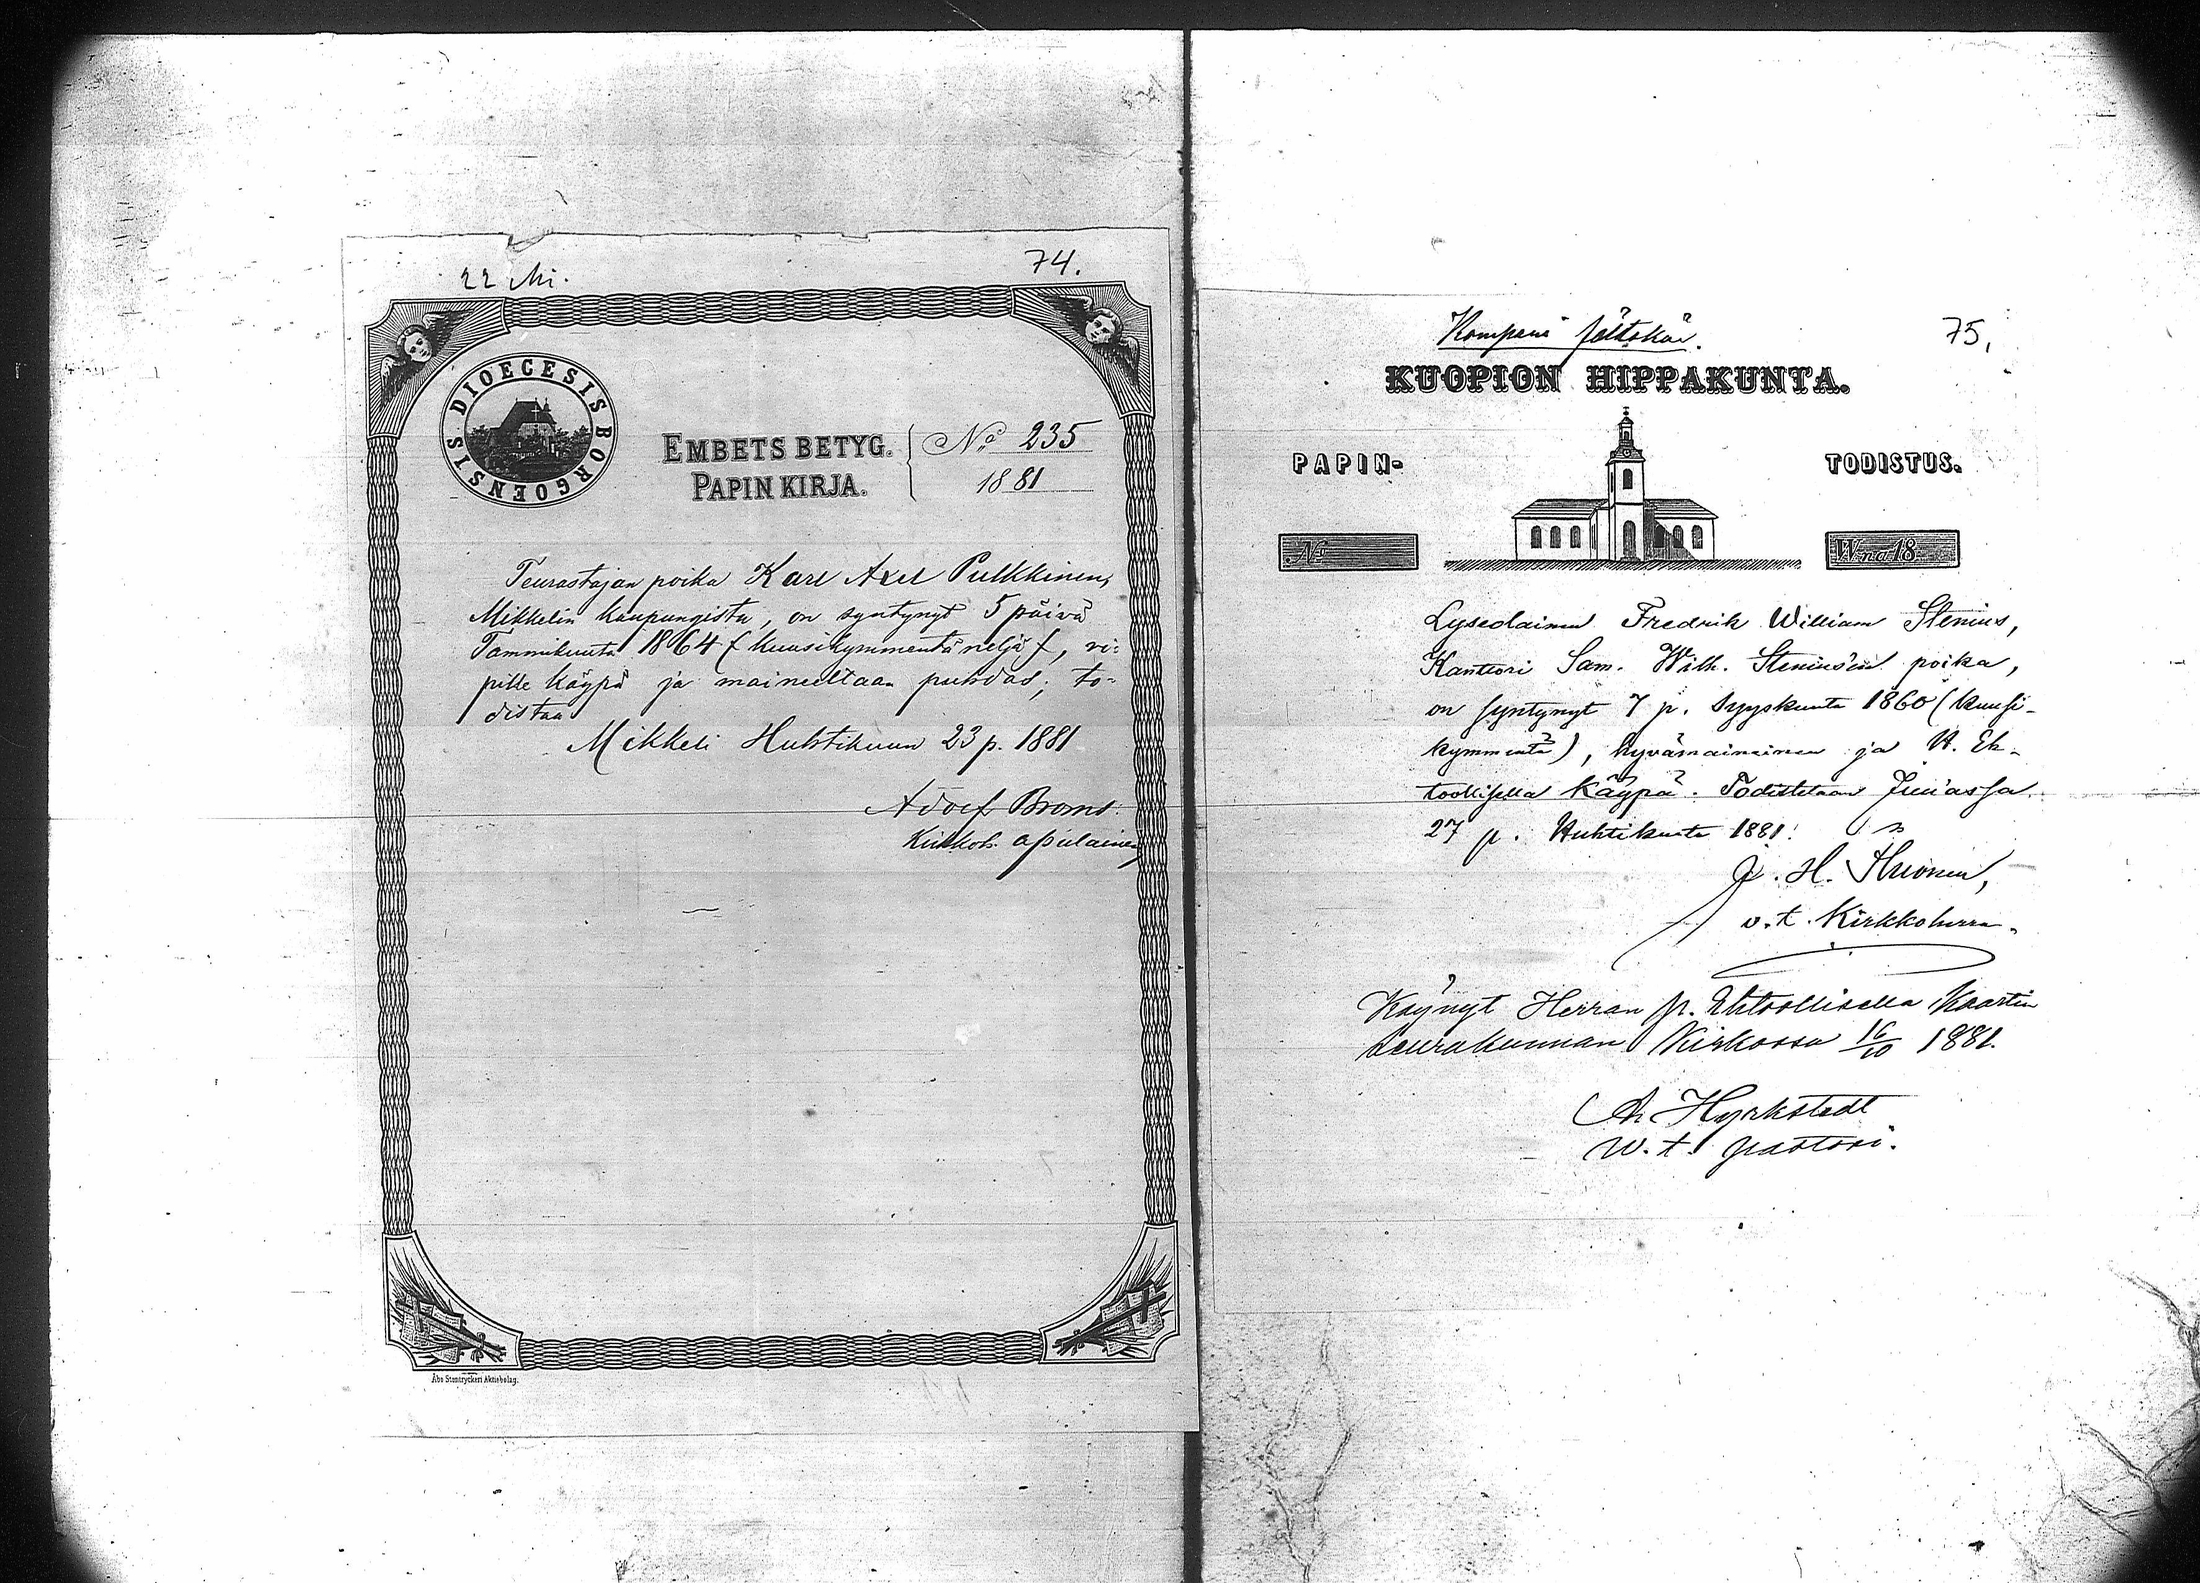 22 Mi.
74.
DIOECESIS BORGOENSIS
EMBETS BETYG.
PAPIN KIRJA.
No 235
1881
Teurastajan poika Karl Axel Pulkkinen,
Mikkelin kaupungista, on syntynyt 5 päivä
Tammikuuta 1864 (kuusikymmentä neljä), ri=
pille käypä ja maineeltaan puhdas; to=
distaa
Mikkeli Huhtikuun 23 p. 1881
Adolf Broms.
Kirkkoh. apulainen
Åbo Stentryckeri Aktiebolag.
75,
KUOPION HIPPAKUNTA.
PAPIN-
TODISTUS.
No
Wna 18
Lyseolainen Fredrik William Stenius,
Kanttori Sam. Wilh. Stenius'en poika,
on syntynyt 7 p. Syyskuuta 1860 (kuusi-
kymmentä), hyvämaineinen ja H. Eh-
toollisella käypä. Todistetaan
27 p. Huhtikuuta 1881.
v.t. Kirkkoherra.
Käynyt Herran p. Ehtoollisella Kaartin
seurakunnan Kirkossa 16/10 1881.
Hyrkstedt
w.t. pastori.